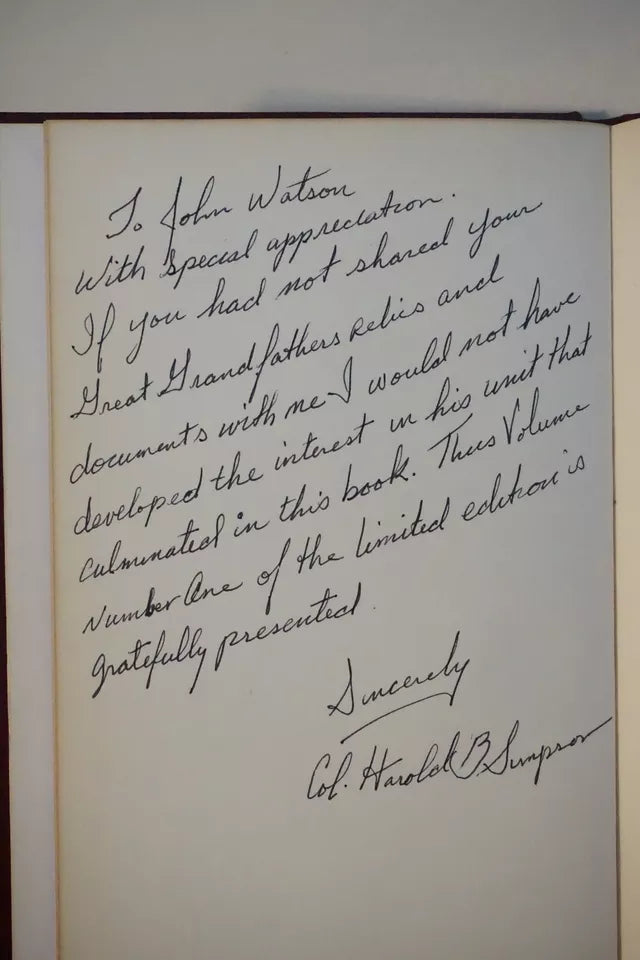 To John Watson
With special appreciation.
If you had not shared your
Great Grandfathers relics and
documents with me I would not have
developed the interest in his unit that
culminated in this book. Thus Volume
Number One of the limited edition is
gratefully presented.
Sincerely
Col. Harold B Simpson